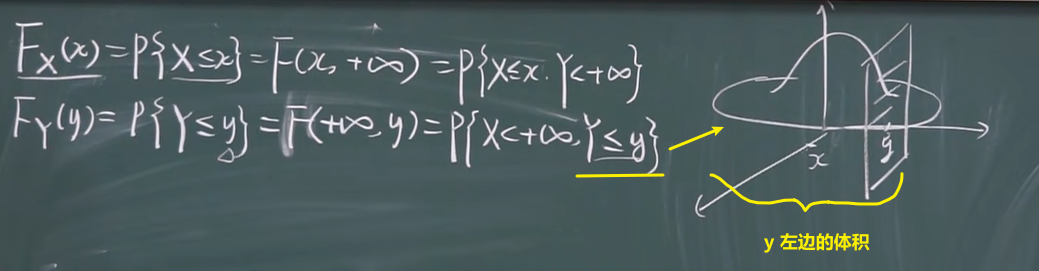 F_X(x) = P{X≤x} = F(x, +∞) = P{X≤x. Y<+∞}
F_Y(y) = P{Y≤y} = F(+∞, y) = P{X<+∞, Y≤y}
x
y
y 左边的体积